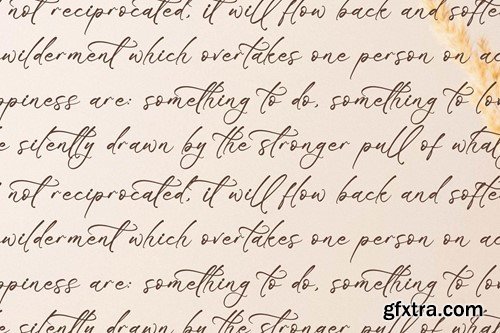 not reciprocated, it will flow back and softe
wilderment which overtakes one person on ac
ppiness are: something to do, something to lo
e silently drawn by the stronger pull of what
not reciprocated, it will flow back and softe
wilderment which overtakes one person on ac
ppiness are: something to do, something to lo
e silently drawn by the stronger pull of what
gfxtra.com